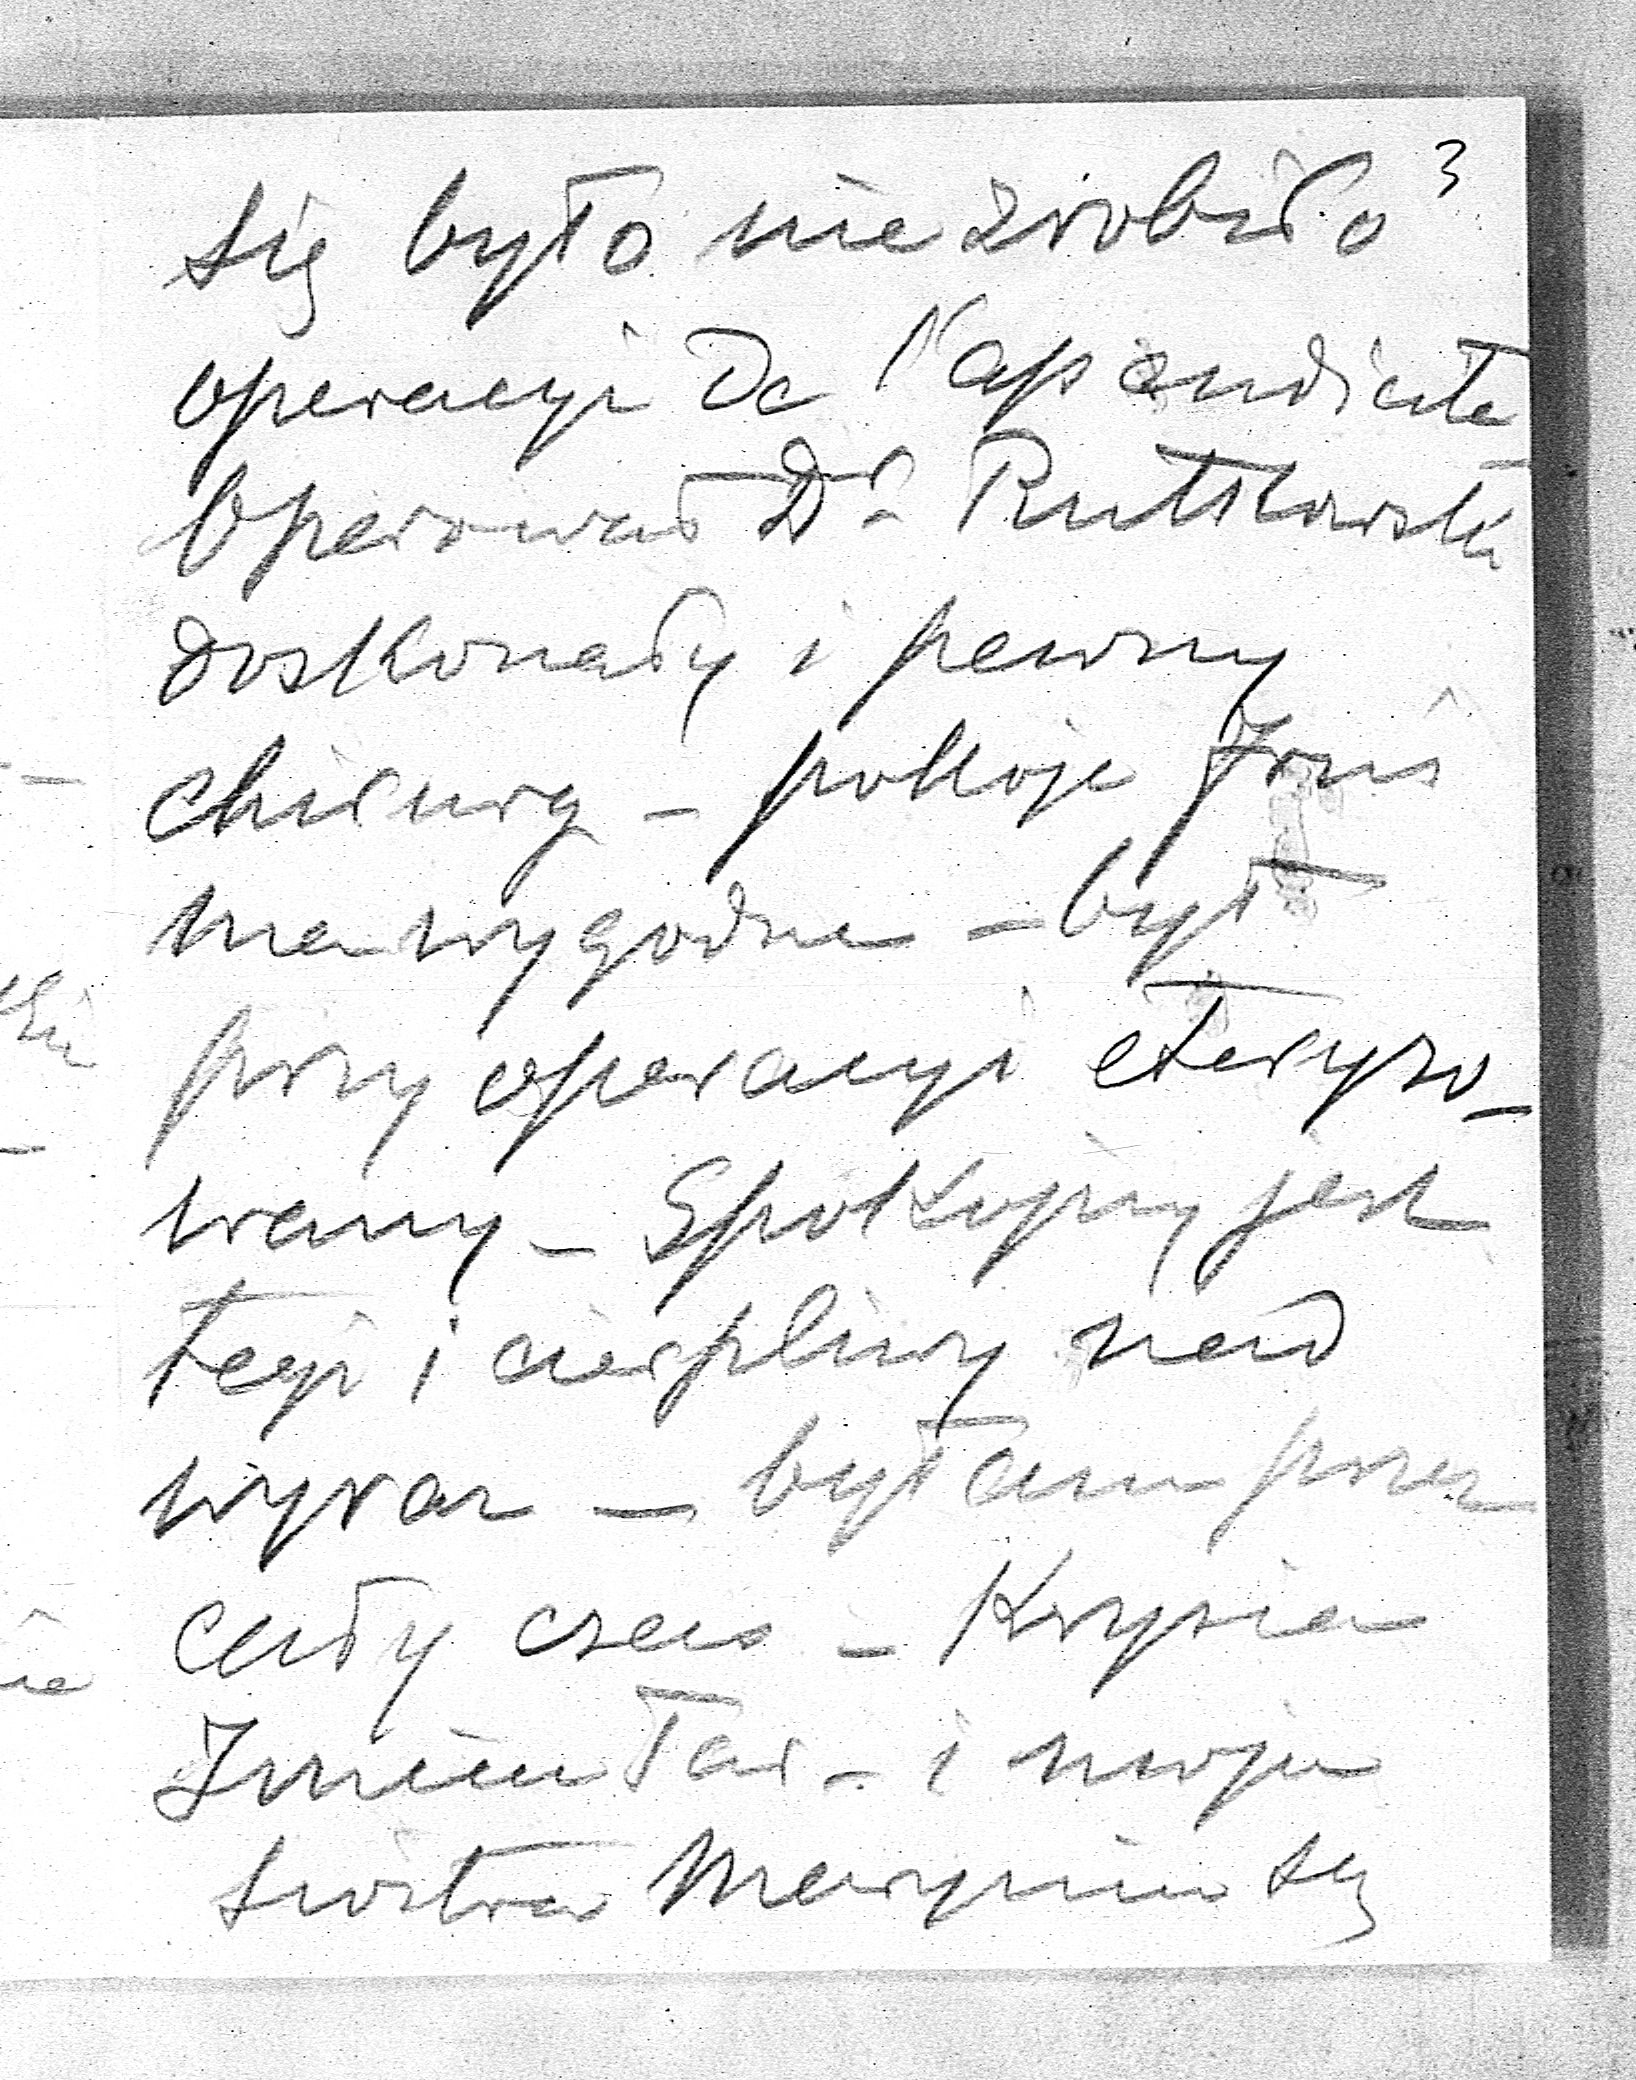 3
się było nie zrobiło
operacyi de l'apendicite
Operował Dr. Rutkowski
doskonały i pewny
chirurg – pokoje Jruś
ma wygodne – był
przy operacyi eteryzo-
wany – Spokojny jest
tęgi i cierpliwy nad
wyraz – byłam przez
cały czas – Krysia
Jmieu Tar – i moja
siostra Marynia są